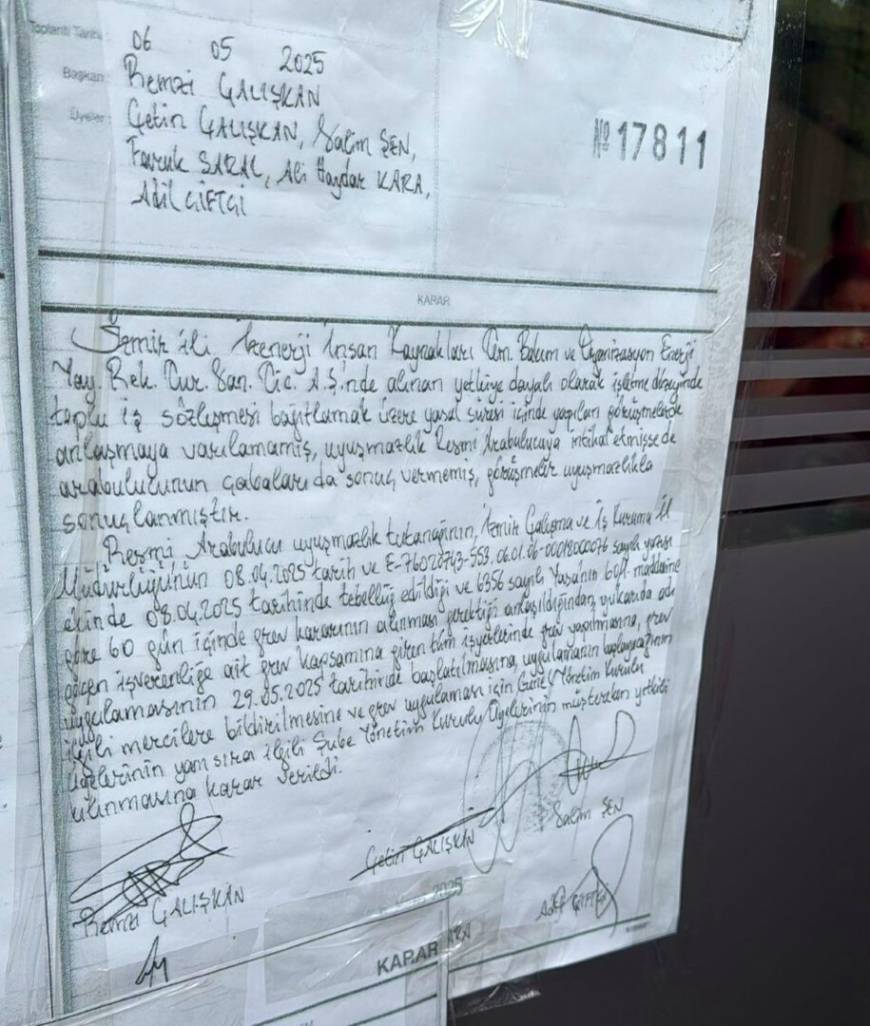 Toplantı Tarihi 06 05 2025
Başkan: Remzi ÇALIŞKAN
Üyeler: Çetin ÇALIŞKAN, Salim ŞEN,
Faruk SARAL, Ali Haydar KARA,
Adil ÇİFTÇİ
№ 17811
KARAR
İzmir ili İzenerji İnsan Kaynakları Tem. Bakım ve Organizasyon Enerji
Yay. Rek. Tur. San. Tic. A.Ş.'nde alınan yetkiye dayalı olarak işletme düzeyinde
toplu iş sözleşmesi bağıtlamak üzere yasal süresi içinde yapılan görüşmelerde
anlaşmaya varılamamış, uyuşmazlık Resmi Arabulucuya intikal etmişse de
arabulucunun çabaları da sonuç vermemiş, görüşmeler uyuşmazlıkla
sonuçlanmıştır.
Resmi Arabulucu uyuşmazlık tutanağının, İzmir Çalışma ve İş Kurumu İl
Müdürlüğü'nün 08.04.2025 tarih ve sayılı yazısı
ekinde 08.04.2025 tarihinde tebellüğ edildiği ve 6356 sayılı Yasa'nın 60/1. maddesine
göre 60 gün içinde grev kararının alınması gerektiği anlaşıldığından, yukarıda adı
geçen işverenliğe ait grev kapsamına giren tüm işyerlerinde grev yapılmasına, grev
uygulamasının 29.05.2025 tarihinde başlatılmasına, uygulamanın başlayacağının
ilgili mercilere bildirilmesine ve grev uygulaması için Genel Yönetim Kurulu
Üyelerinin yanı sıra ilgili Şube Yönetim Kurulu Üyelerinin müştereken yetkili
kılınmasına karar verildi.
Remzi ÇALIŞKAN
Çetin ÇALIŞKAN
Salim ŞEN
Adil ÇİFTÇİ
2025
KARAR